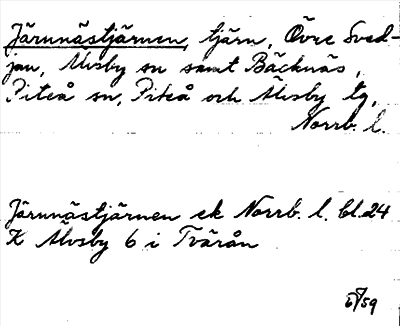 Järnnästjärnen, tjärn, Övre Sved-
jan, Älvsby sn samt Bäcknäs,
Piteå sn, Piteå och Älvsby tg,
Norrb. l.
Järnnästjärnen ek Norrb. l. bl. 24
K Älvsby 6 i Tvärån